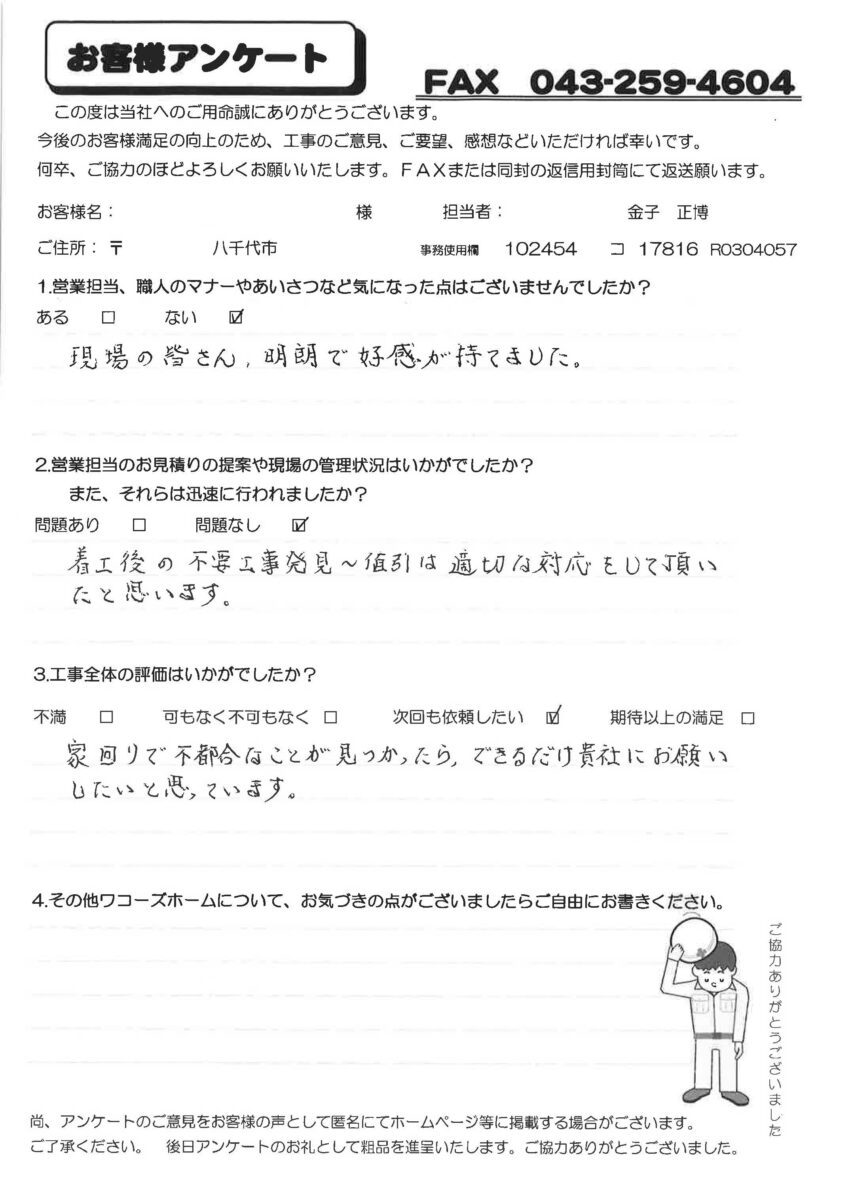 お客様アンケート
FAX 043-259-4604
この度は当社へのご用命誠にありがとうございます。
今後のお客様満足の向上のため、工事のご意見、ご要望、感想などいただければ幸いです。
何卒、ご協力のほどよろしくお願いいたします。FAXまたは同封の返信用封筒にて返送願います。
お客様名： 様 担当者： 金子 正博
ご住所：〒 八千代市 事務使用欄 102454 コ 17816 R0304057
1.営業担当、職人のマナーやあいさつなど気になった点はございませんでしたか？
ある □ ない ☑
現場の皆さん、明朗で好感が持てました。
2.営業担当のお見積りの提案や現場の管理状況はいかがでしたか？
また、それらは迅速に行われましたか？
問題あり □ 問題なし ☑
着工後の不要工事発見～値引は適切な対応をして頂い
たと思います。
3.工事全体の評価はいかがでしたか？
不満 □ 可もなく不可もなく □ 次回も依頼したい ☑ 期待以上の満足 □
家回りで不都合なことが見つかったら、できるだけ貴社にお願い
したいと思っています。
4.その他ワコーズホームについて、お気づきの点がございましたらご自由にお書きください。
ご協力ありがとうございました
尚、アンケートのご意見をお客様の声として匿名にてホームページ等に掲載する場合がございます。
ご了承ください。 後日アンケートのお礼として粗品を進呈いたします。ご協力ありがとうございました。